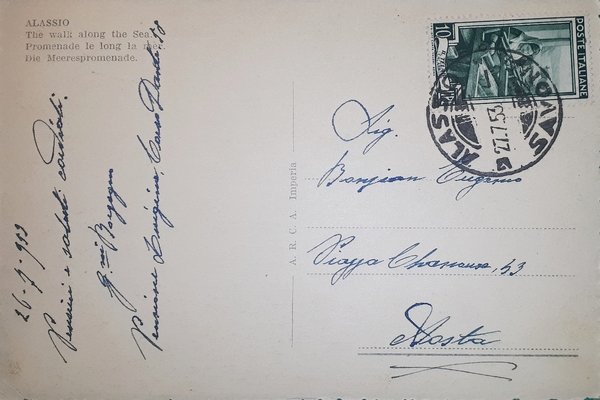 ALASSIO
The walk along the Sea.
Promenade le long la mer.
Die Meerespromenade.
26-7-953
Pensieri e saluti cordiali.
Pensione Luigina, Corso Dante 58
A. R. C. A. Imperia
10
POSTE ITALIANE
ALASSIO
SAVONA
27.7.53
Sig.
Bonjean Eugenio
Piazza Chanoux, 53
Aosta